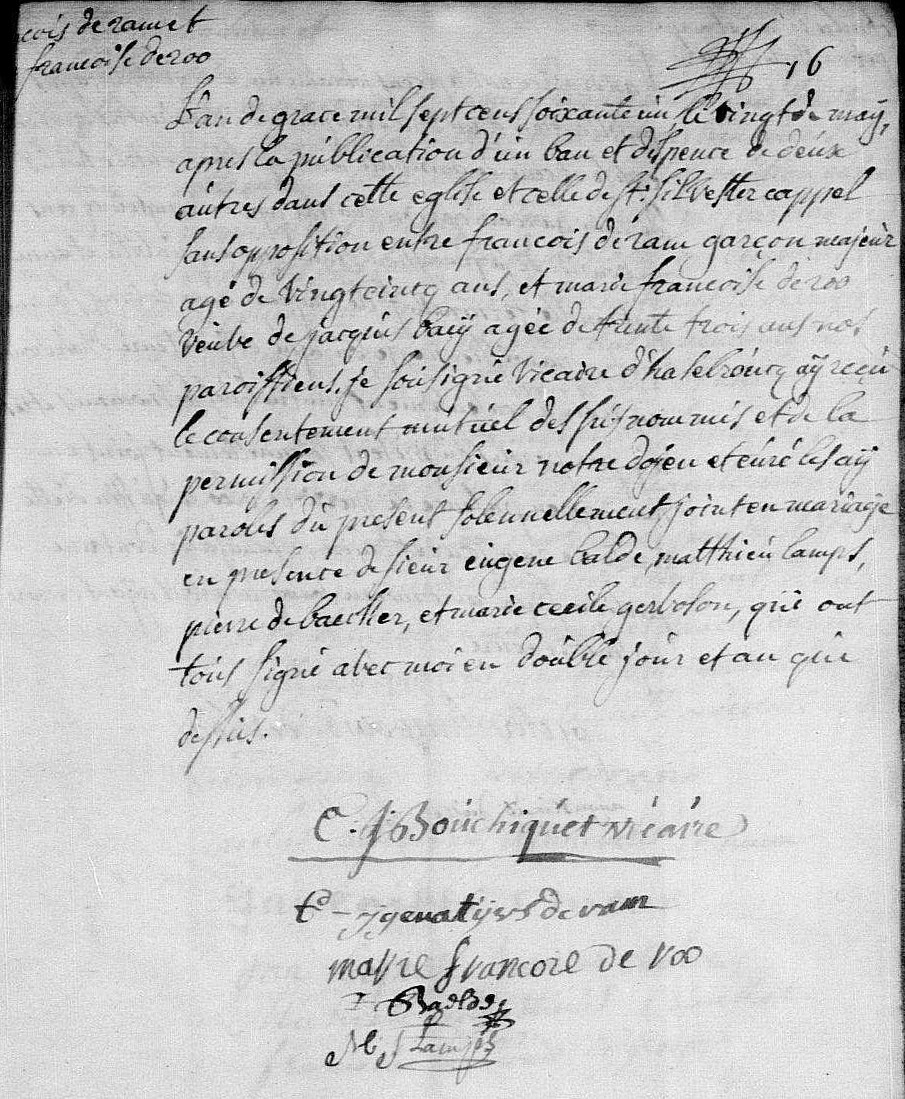 cois de ram et
francoise de roo
16
L'an de grace mil sept cens soixante un le vingt de maÿ,
apres la publication d'un ban et dispence de deux
autres dans cette eglise et celle de st. silvester cappel
sans opposition entre francois de ram garçon majeur
agé de vingt cincq ans, et marie francoise de roo
veuve de jacques baeÿ agée de trente trois ans nos
paroissiens. je soussigné vicaire d'hazebroucq aÿ reçu
le consentement mutuel des susnommés et de la
permission de monsieur notre doïen et curé les aÿ
paroles du present solennellement joint en mariage
en presence de sieur eugene balde, matthieu lamps,
pierre de baecker, et marie cecile gerbolon, qui ont
tous signé avec moi en double jour et an que
dessus.
C. J Bouchiquet vicaire
de ram
marie francoise de roo
Baelde
M J Lamps